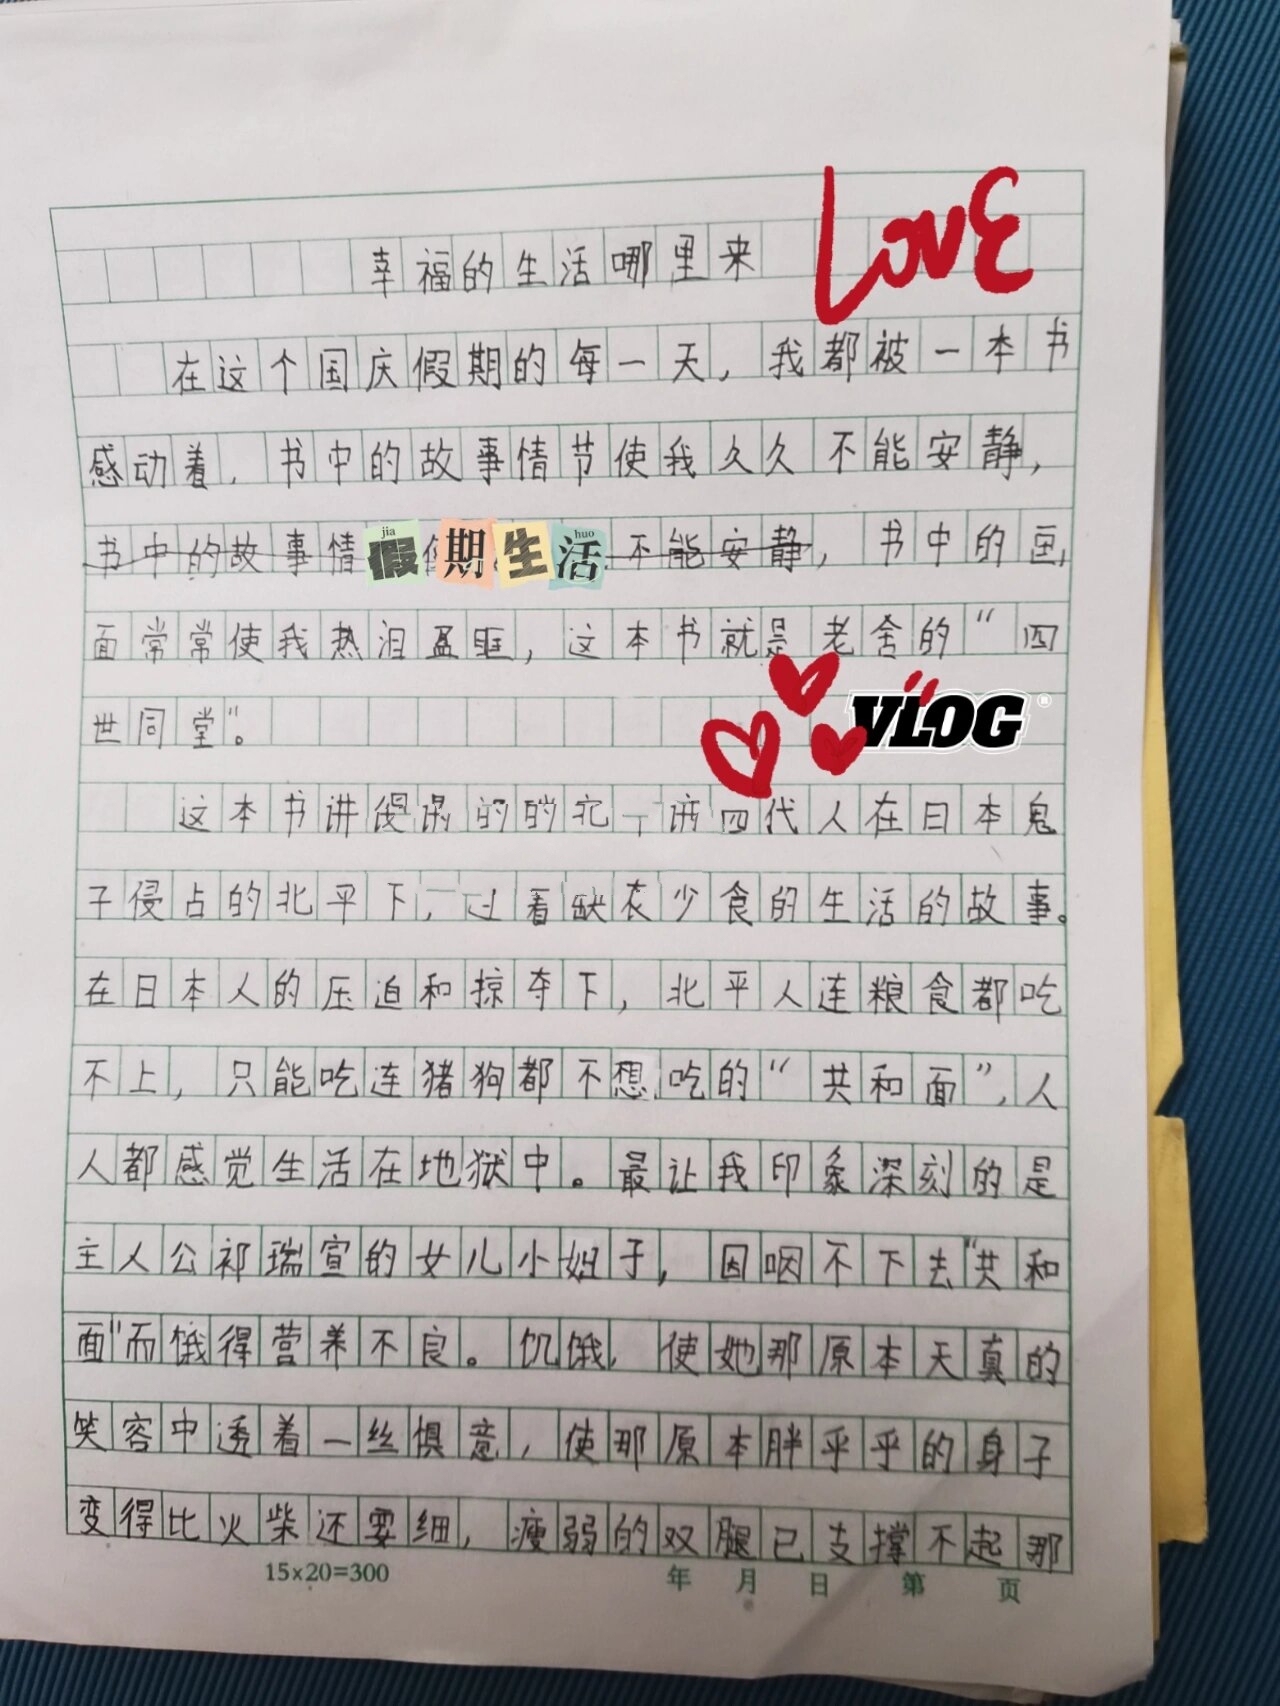 LOVE
幸福的生活哪里来
在这个国庆假期的每一天，我都被一本书
感动着，书中的故事情节使我久久不能安静，
书中的故事情 不能安静，书中的画
jia huo
假期生活
面常常使我热泪盈眶，这本书就是老舍的“四
世同堂”。
VLOG
这本书讲 的 四代人在日本鬼
子侵占的北平下，过着缺衣少食的生活的故事。
在日本人的压迫和掠夺下，北平人连粮食都吃
不上，只能吃连猪狗都不想吃的“共和面”，人
人都感觉生活在地狱中。最让我印象深刻的是
主人公祁瑞宣的女儿小妞子，因咽不下去“共和
面”而饿得营养不良。饥饿，使她那原本天真的
笑容中透着一丝惧意，使那原本胖乎乎的身子
变得比火柴还要细，瘦弱的双腿已支撑不起那
15×20=300 年 月 日 第 页